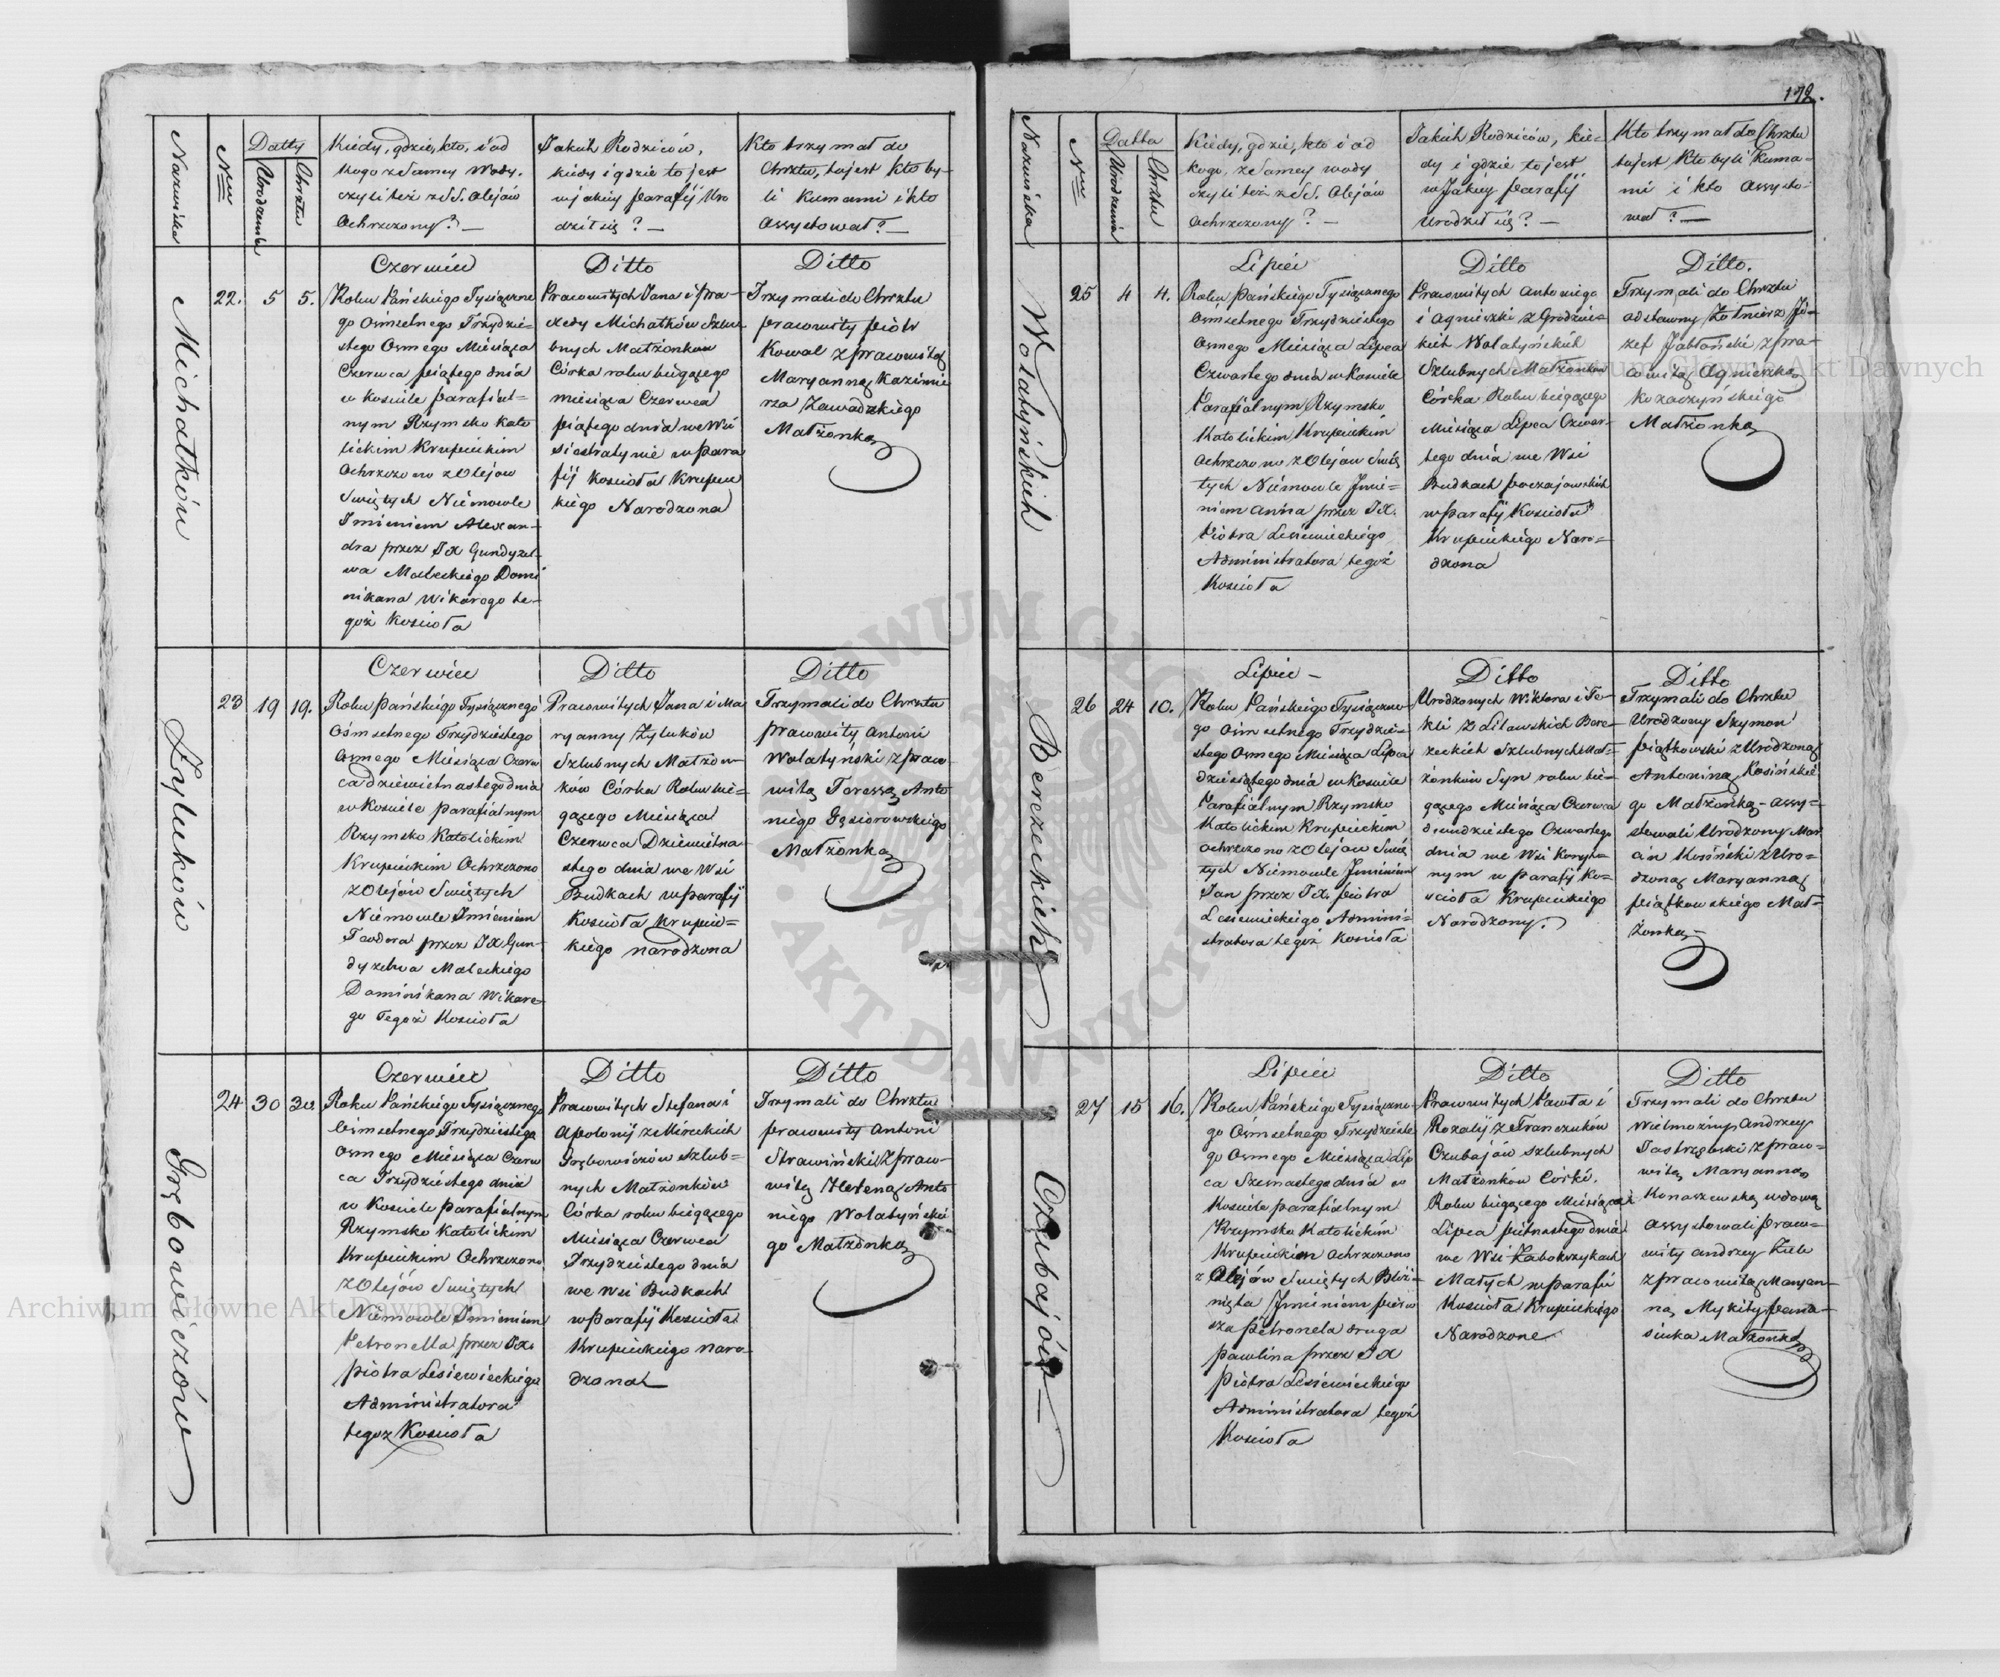 Nazwiska
Nru
Datty
Urodzenia
Chrztu
Kiedy, gdzie, kto, i od
kogo z Samey Wody,
czyli też z SS. Olejów
Ochrzczony? —
Jakich Rodziców,
kiedy i gdzie to jest
w jakiey parafij Uro
dził się? —
Kto trzymał do
Chrztu, to jest kto by-
li Kumami i kto
Assystował? —
Michałków
22.
5
5.
Czerwiec
Roku Pańskiego Tysiączne
go Ośmsetnego Trzydzie-
stego Osmego Miesiąca
Czerwca piątego dnia
w Kościele parafial-
nym Rzymsko Kato
lickim Krupieckim
Ochrzczono z Olejów
Świętych Niemowle
Imieniem Alexan-
dra przez JX
Maleckiego Domi
nikana Wikarego te-
goż Kościoła
Ditto
Pracowitych Jana i Pra-
xedy Michałków Szlu
bnych Małżonków
Córka roku biegącego
miesiąca Czerwca
piątego dnia we Wsi
w para
fij Kościoła Krupiec
kiego Narodzona
Ditto
Trzymali do Chrztu
pracowity Piotr
Kowal z pracowitą
Maryanną Kazimie
rza Zawadzkiego
Małżonką
Żyluków
23
19
19.
Czerwiec
Roku Pańskiego Tysiącznego
Ośmsetnego Trzydziestego
Osmego Miesiąca Czerw
ca dziewietnastego dnia
w Kościele parafialnym
Rzymsko Katolickim
Krupieckim Ochrzczono
z Olejów Świętych
Niemowle Imieniem
Teodora przez JX Gun-
Maleckiego
Dominikana Wikare-
go Tegoż Kościoła
Ditto
Pracowitych Jana i Ma
ryanny Żyluków
Szlubnych Małżon-
ków Córka Roku bie-
gącego Miesiąca
Czerwca Dziewietna
stego dnia we Wsi
Budkach w parafij
Kościoła Krupiec-
kiego narodzona
Ditto
Trzymali do Chrztu
pracowity Antoni
Wolatyński z praco-
witą Teressą Anto
niego Gąsiorowskiego
Małżonką
Grębowiczów
24
30
30
Czerwiec
Roku Pańskiego Tysiącznego
Ośmsetnego Trzydziestego
Osmego Miesiąca Czerw
ca Trzydziestego dnia
w Kościele parafialnym
Rzymsko Katolickim
Krupieckim Ochrzczono
z Olejów Świętych
Niemowle Imieniem
Petronella przez JX.
Piotra Lesiewieckiego
Administratora
tegoz Kościoła
Ditto
Pracowitych Stefana i
Apolonij z Mireckich
Grębowiczów szlub-
nych Małżonków
Córka roku bieżącego
Miesiąca Czerwca
Trzydziestego dnia
we Wsi Budkach
w parafij Kościoła
Krupieckiego naro-
dzona
Ditto
Trzymali do Chrztu
pracowity Antoni
Strawiński z praco-
witą Heleną Anto
niego Wolatyńskie
go Małżonką
172.
Nazwiska
Nru
Datta
Urodzenia
Chrztu
Kiedy, gdzie, kto i od
kogo, z Samey wody
czyli też z SS. Olejów
Ochrzczony? —
Jakich Rodziców, kie-
dy i gdzie to jest
w Jakiey parafij
urodził się? —
Kto trzymał do Chrztu
to jest Kto byli Kuma-
mi i kto Assysto-
wał? —
Wolatyńskich
25
4
4.
Lipiec
Roku Pańskiego Tysiącznego
Ośmsetnego Trzydziestego
Osmego Miesiąca Lipca
Czwartego dnia w Kościele
Parafialnym Rzymsko
Katolickim Krupieckim
Ochrzczono z Olejów Świę
tych Niemowle Imie-
niem Anna przez JX.
Piotra Lesiewieckiego
Administratora tegoż
Kościoła
Ditto
Pracowitych Antoniego
i Agnieszki z Grodzic-
kich Wolatyńskich
Szlubnych Małżonków
Córka Roku bieżącego
Miesiąca Lipca Czwar-
tego dnia we Wsi
Budkach poczajowskich
w parafij Kościoła
Krupieckiego Naro-
dzona
Ditto.
Trzymali do Chrztu
odstawny Żołnierz Jó-
zef Jabłoński z pra-
cowitą Agnieszką
Kozaczyńskiego
Małżonką
Berezeckich
26
24
10.
Lipiec —
Roku Pańskiego Tysiączne-
go Ośmsetnego Trzydzie-
stego Osmego Miesiąca Lipca
dziesiątego dnia w Kościele
Parafialnym Rzymsko
Katolickim Krupieckim
ochrzczono z Olejów Świę
tych Niemowle Imieniem
Jan przez JX. Piotra
Lesiewieckiego Admini-
stratora tegoż Kościoła
Ditto
Urodzonych Wiktora i Te-
kli Bere-
zeckich Szlubnych Mał-
żonków Syn roku bie-
gącego Miesiąca Czerwca
dwudziestego Czwartego
dnia we Wsi
nym w parafij Ko-
ścioła Krupieckiego
Narodzony.
Ditto
Trzymali do Chrztu
Urodzony Szymon
Piątkowski z Urodzoną
Antoniną Kosińskie
go Małżonką - assy-
stowali Urodzony Mar
cin Kosiński z Uro-
dzoną Maryanną
Piątkowskiego Mał-
żonką —
Czubajów
27
15
16.
Lipiec
Roku Pańskiego Tysiączne-
go Ośmsetnego Trzydzieste
go Osmego Miesiąca Lip
ca Szesnastego dnia w
Kościele parafialnym
Rzymsko Katolickim
Krupieckim Ochrzczono
z Olejów Świętych Bliź-
nięta Imieniem pierw
sza Petronela druga
Pawlina przez JX
Piotra Lesiewieckiego
Administratora tegoż
Kościoła
Ditto
Pracowitych Pawła i
Rozalij z Franczuków
Czubajów szlubnych
Małżonków Córki.
Roku bieżącego Miesiąca
Lipca pietnastego dnia
we Wsi Żabokrzykach
Małych w parafii
Kościoła Krupieckiego
Narodzone
Ditto
Trzymali do Chrztu
Wielmożny Andrzey
Jastrzębski z praco-
witą Maryanną
Konaszewską wdową
Assystowali praco-
wity Andrzey
z pracowitą Maryan-
ną Mykity Pana-
siuka Małżonką
Archiwum Główne Akt Dawnych
Archiwum Główne Akt Dawnych
ARCHIWUM GŁÓWNE AKT DAWNYCH